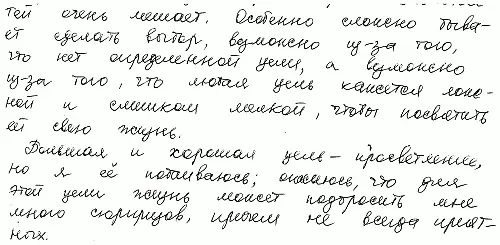 тей очень мешает. Особенно сложно быва-
ет сделать выбор, возможно из-за того,
что нет определенной цели, а возможно
из-за того, что любая цель кажется лож-
ной и слишком мелкой, чтобы посвятить
ей свою жизнь.
Большая и хорошая цель – просветление,
но я её побаиваюсь; опасаюсь, что для
этой цели жизнь может подбросить мне
много сюрпризов, причем не всегда прият-
ных.